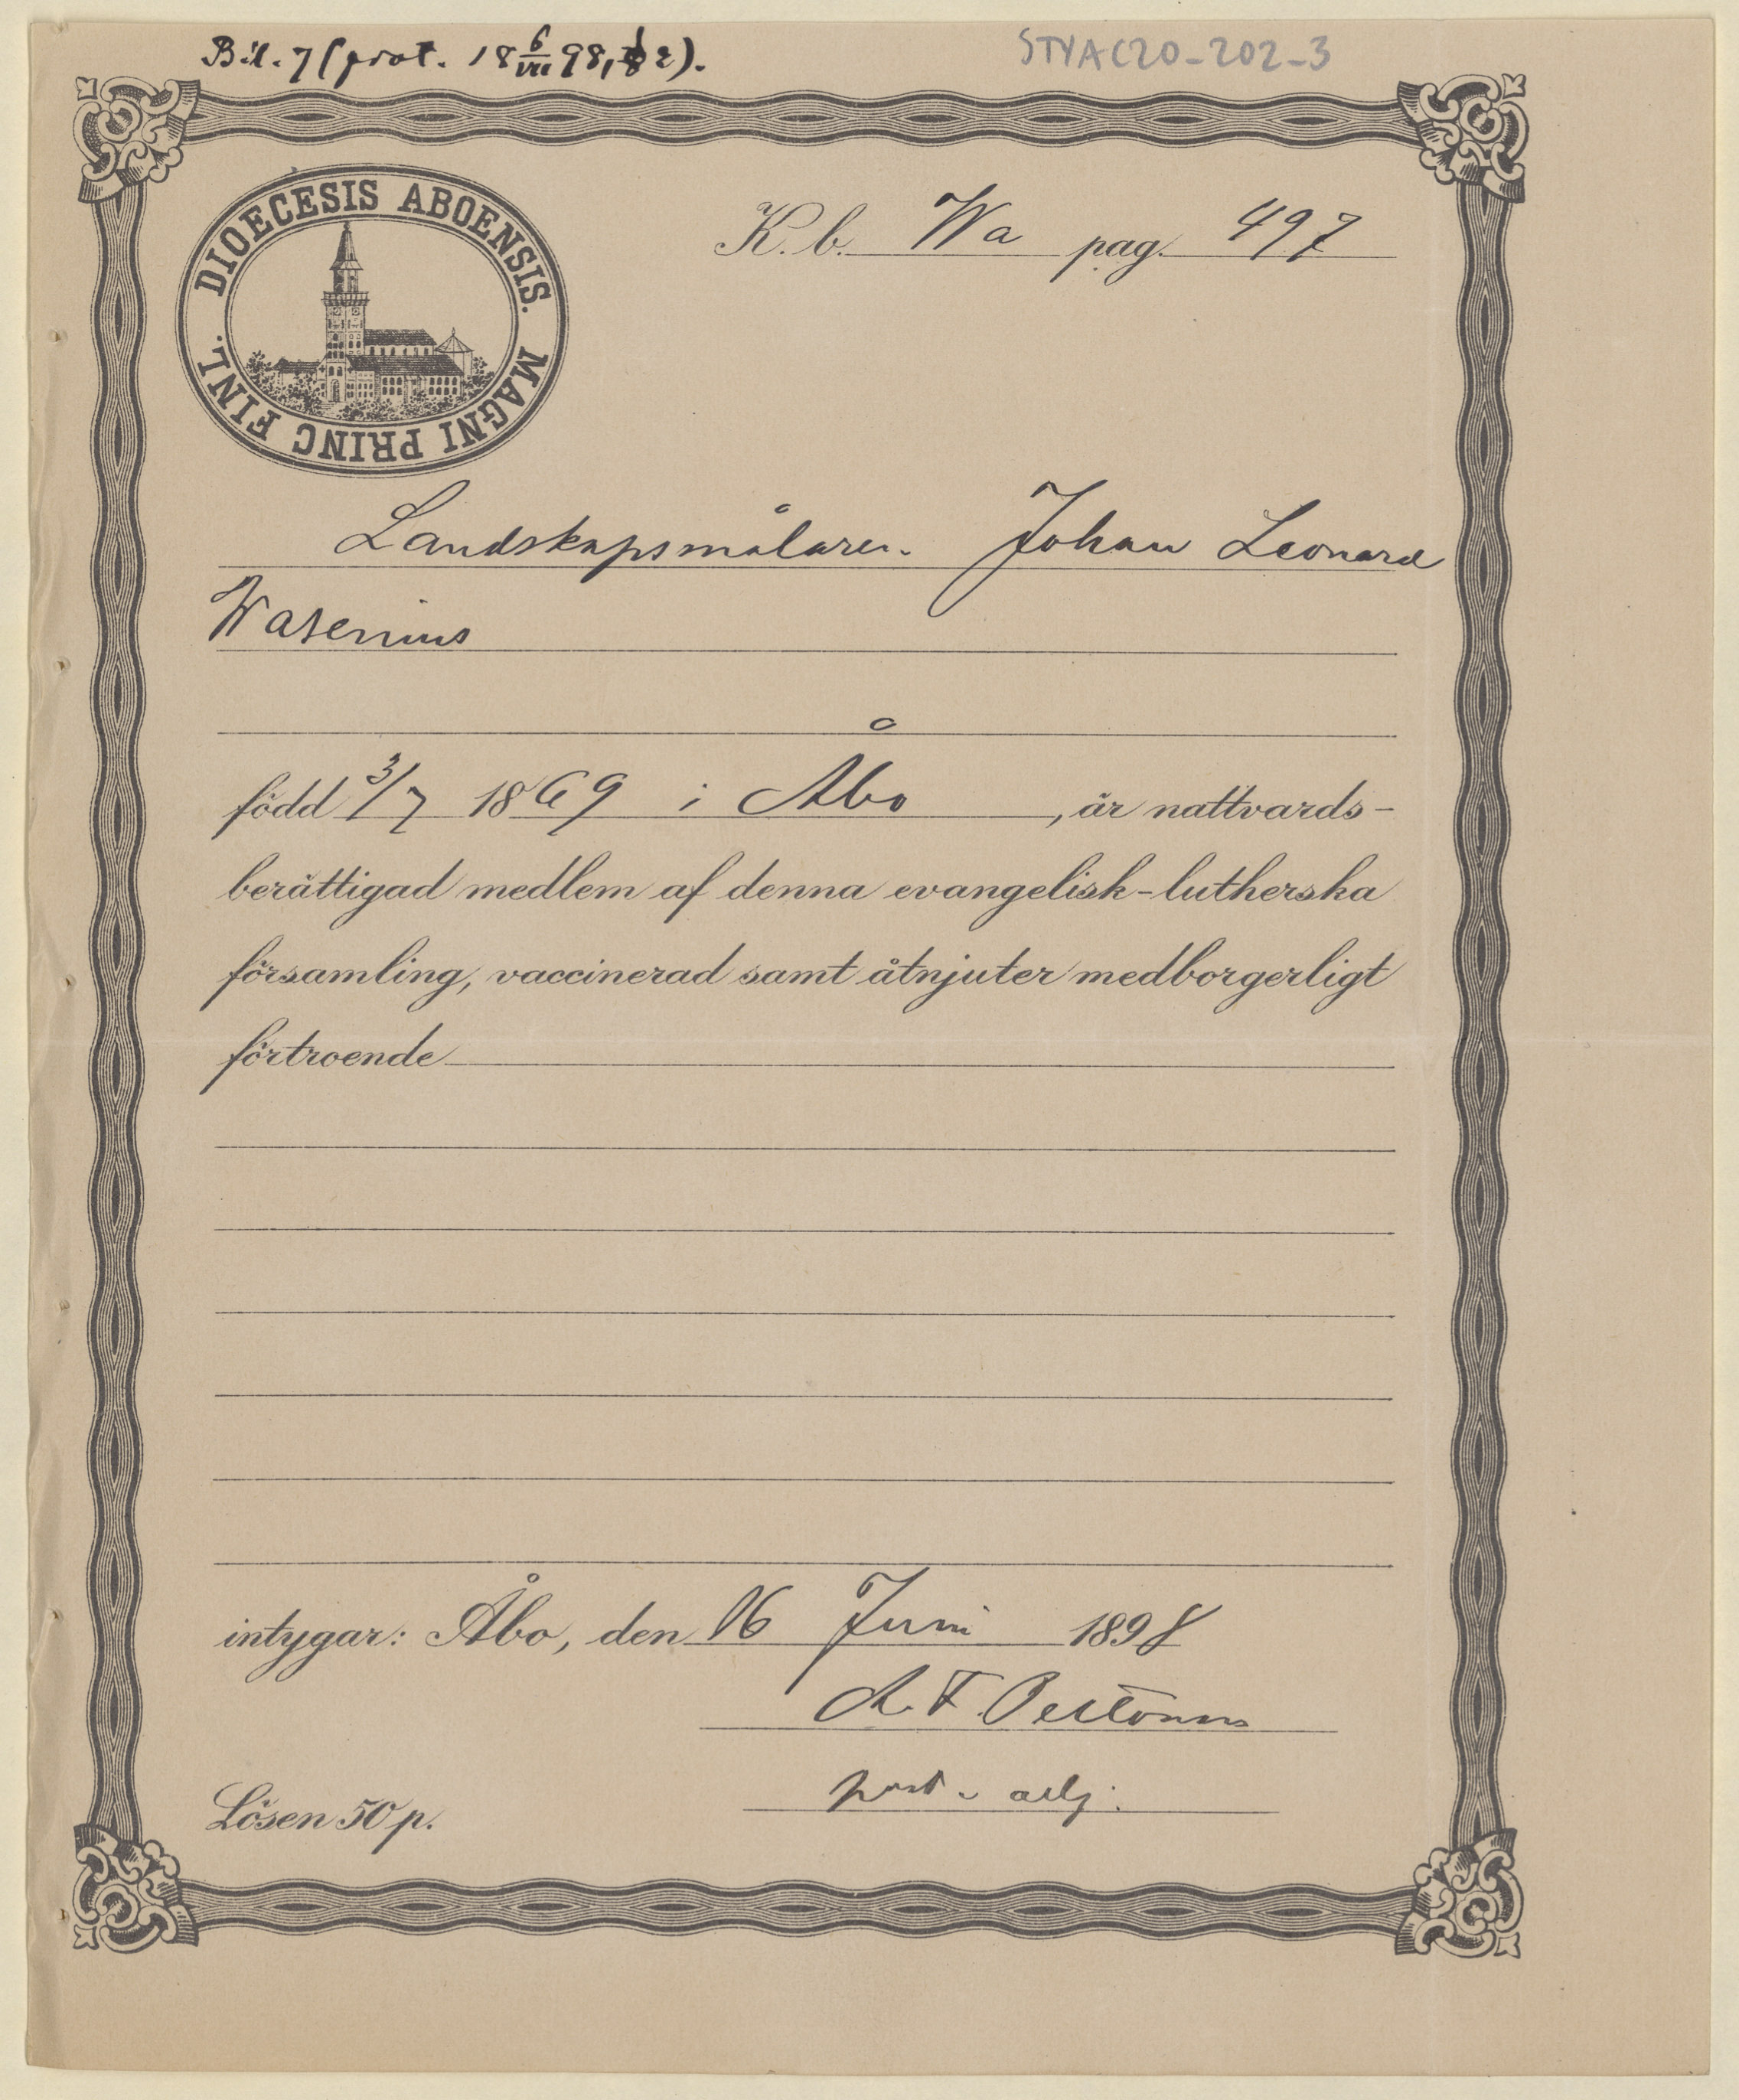 Bil. 7 (prot. 18 6/VII 98, § 2).
STYAC20-202-3
DIOECESIS ABOENSIS.
MAGNI PRINC FINL.
K. b. Wa pag. 497
Landskapsmålaren Johan Leonard
Wasenius
född 3/7 1869 i Åbo, är nattvards-
berättigad medlem af denna evangelisk-lutherska
församling, vaccinerad samt åtnjuter medborgerligt
förtroende
intygar: Åbo, den 16 Juni 1898
A. F.
adj.
Lösen 50 p.